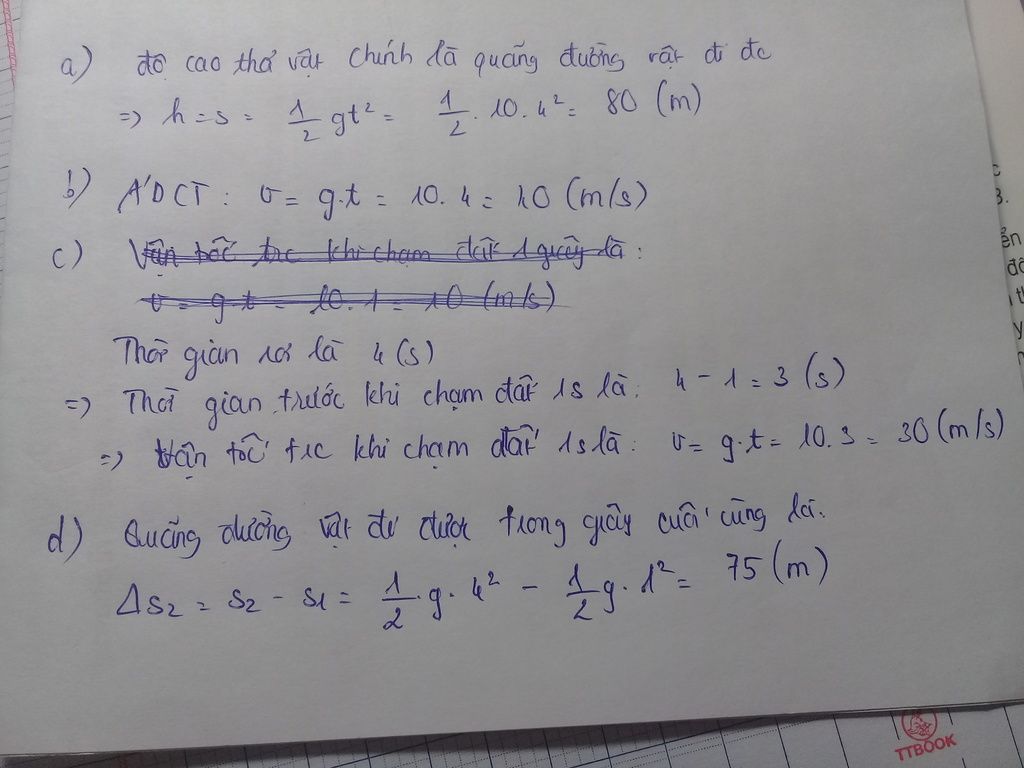 a) độ cao thả vật chính là quãng đường vật đi đc
=> h = s = 1/2 gt² = 1/2 . 10 . 4² = 80 (m)
b) ADCT : v = g.t = 10 . 4 = 40 (m/s)
c) Vận tốc trc khi chạm đất 1 giây là :
v = g.t = 10 . 1 = 10 (m/s)
Thời gian rơi là 4 (s)
=> Thời gian trước khi chạm đất 1s là: 4 - 1 = 3 (s)
=> Vận tốc trc khi chạm đất 1s là : v = g.t = 10 . 3 = 30 (m/s)
d) Quãng đường vật đi được trong giây cuối cùng là:
Δs2 = s2 - s1 = 1/2 . g . 4² - 1/2 g . 1² = 75 (m)
TTBOOK